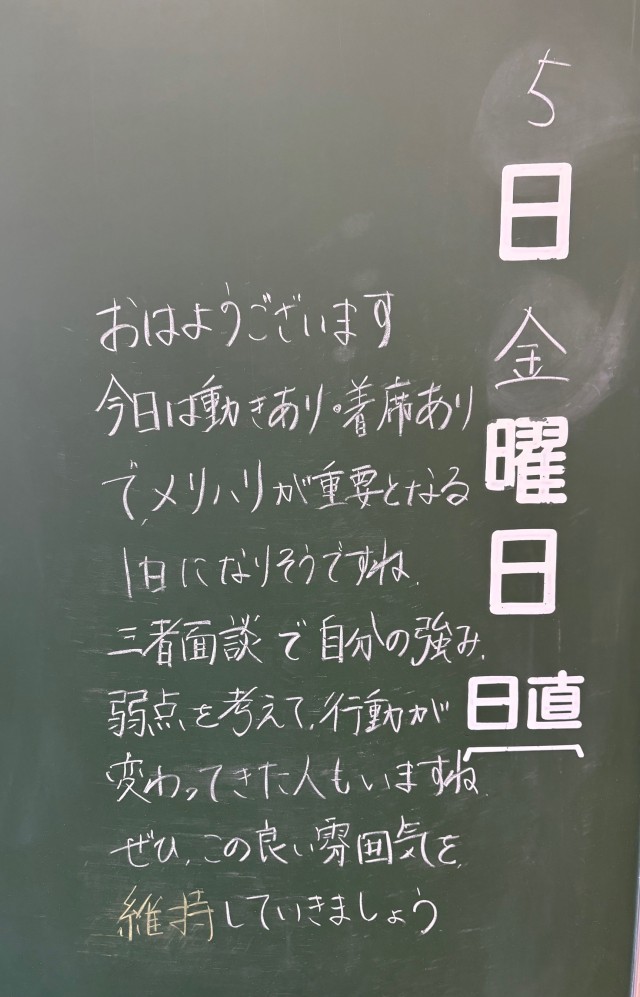 5日金曜日
日直
おはようございます
今日は動きあり・着席あり
で、メリハリが重要となる
1日になりそうですね.
三者面談で自分の強み.
弱点を考えて、行動が
変わってきた人もいますね.
ぜひ、この良い雰囲気を
維持していきましょう